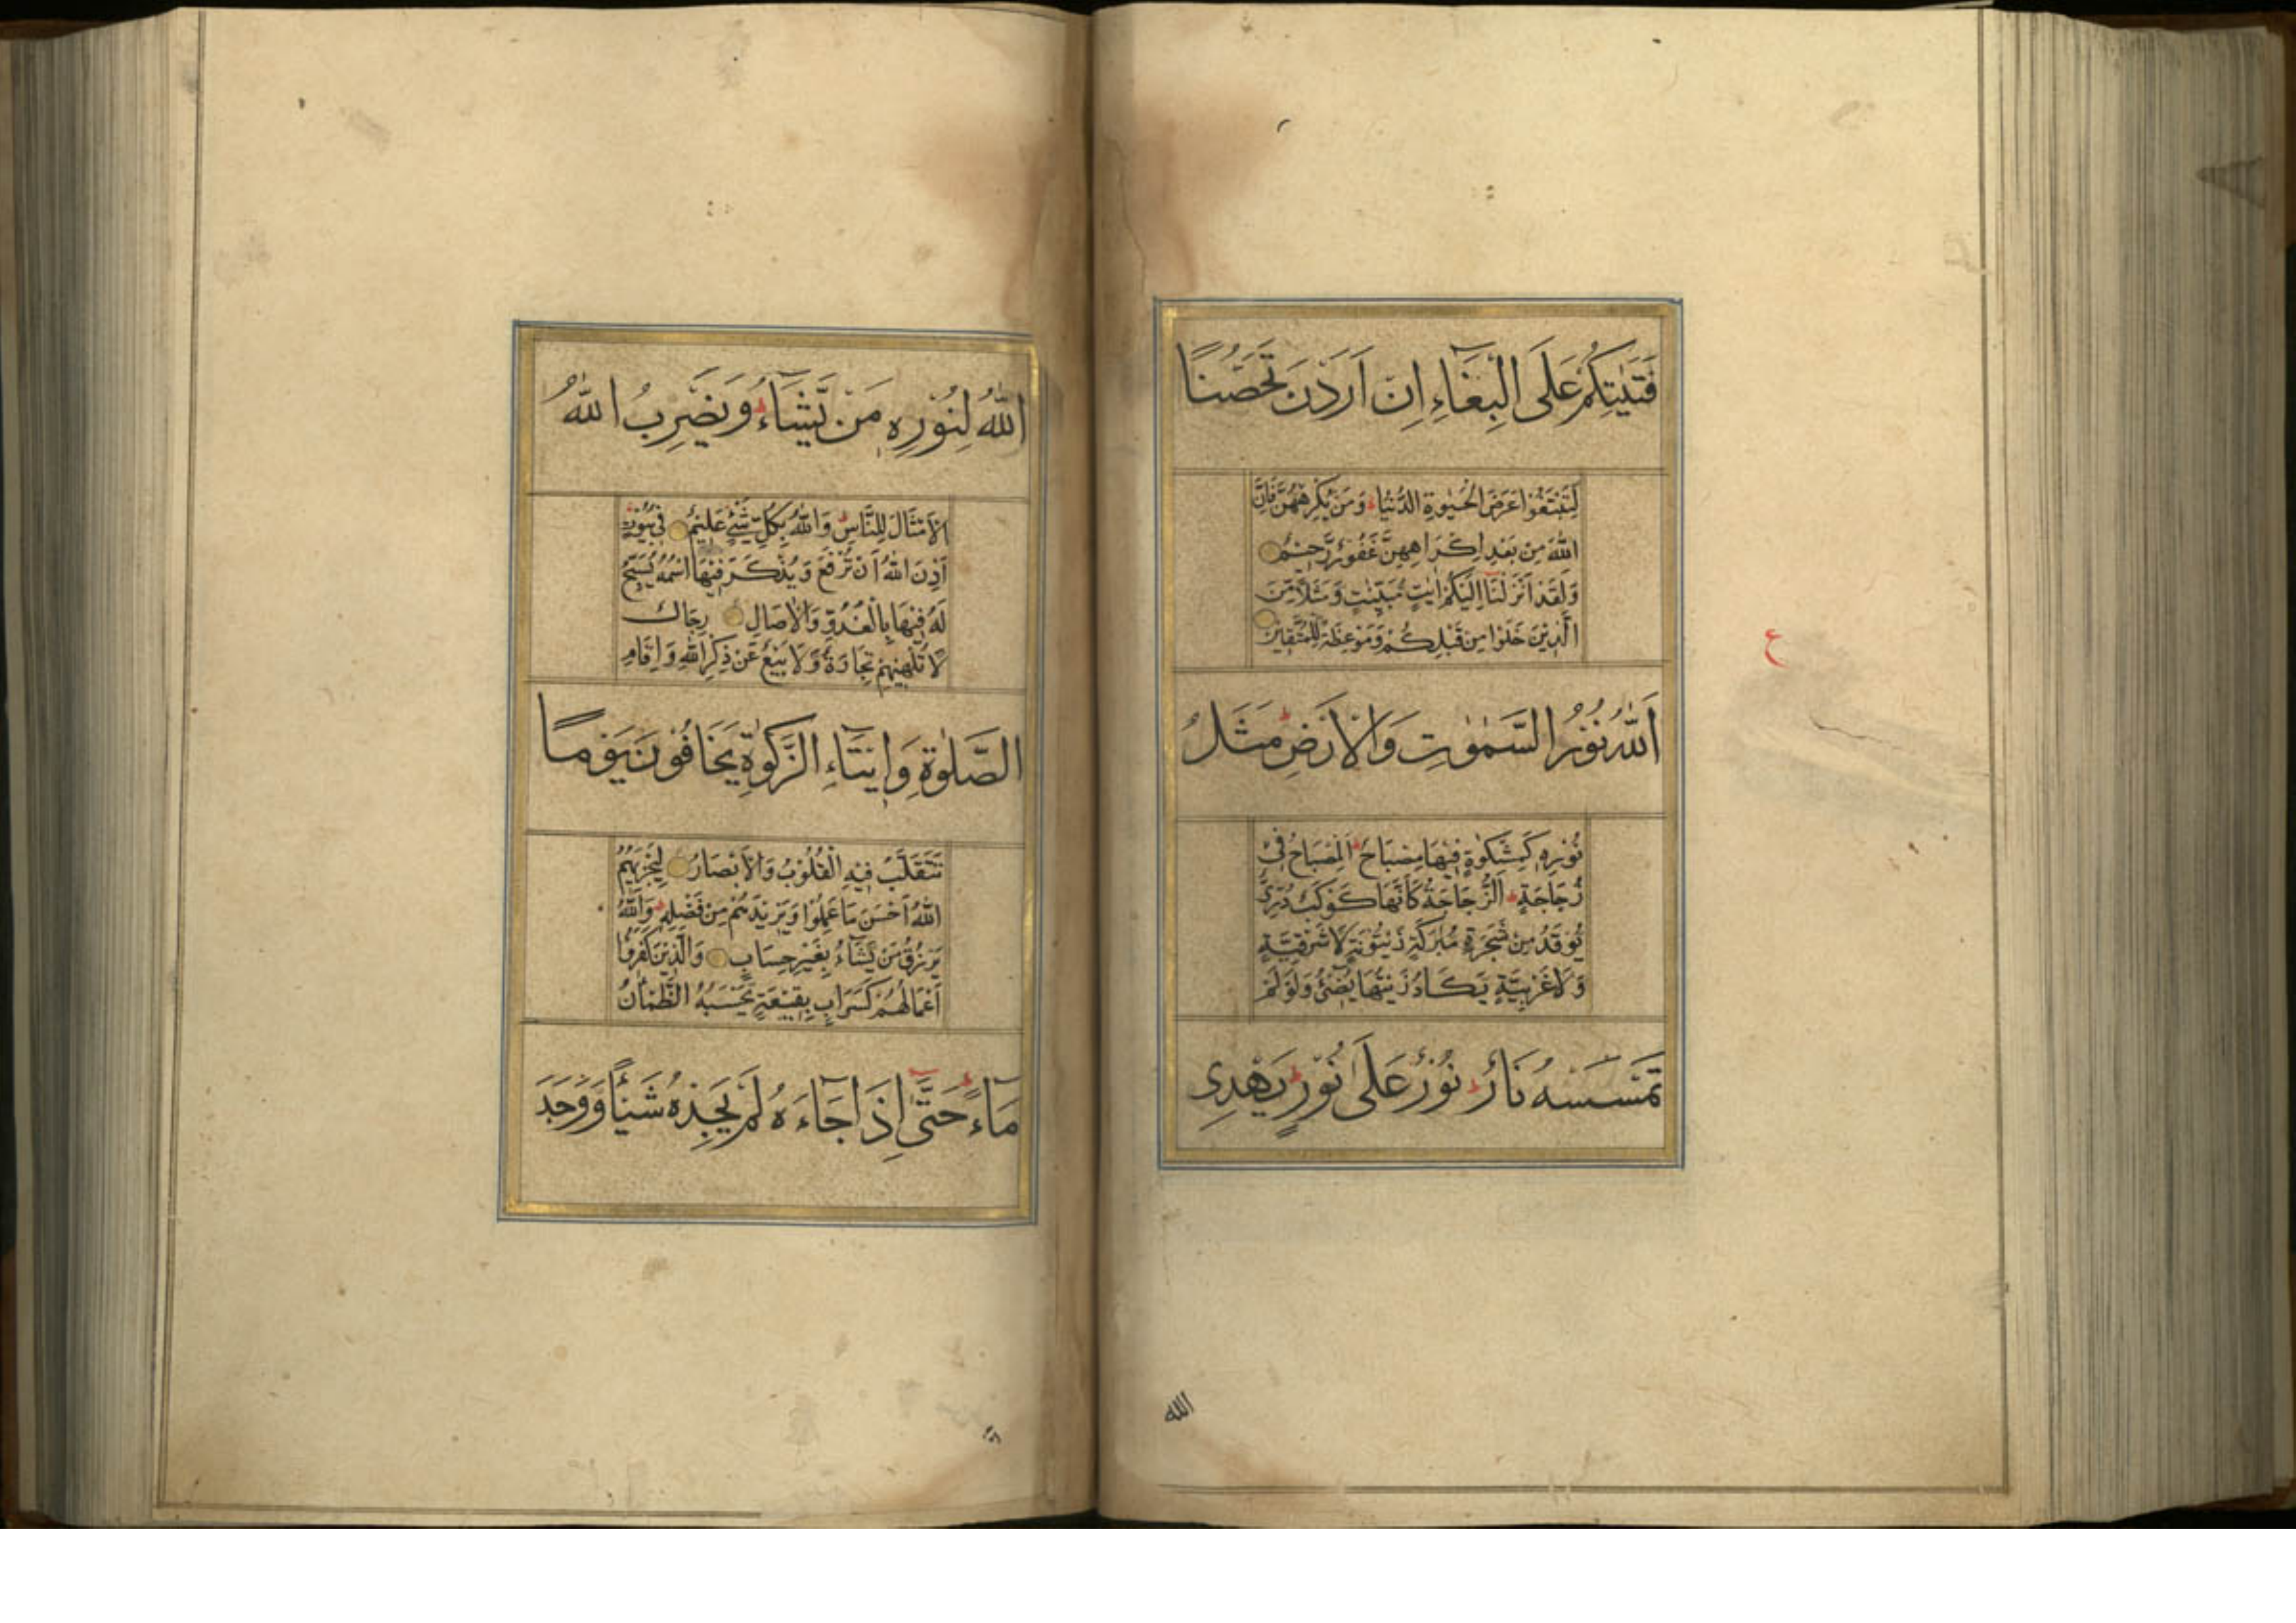 فَتَيٰتِكُمْ عَلَى الْبِغَآءِ اِنْ اَرَدْنَ تَحَصُّنًا
لِّتَبْتَغُوْا عَرَضَ الْحَيٰوةِ الدُّنْيَا ط وَمَنْ يُّكْرِهْهُّنَّ فَاِنَّ
اللّٰهَ مِنْ بَعْدِ اِكْرَاهِهِنَّ غَفُوْرٌ رَّحِيْمٌ
وَلَقَدْ اَنْزَلْنَآ اِلَيْكُمْ اٰيٰتٍ مُّبَيِّنٰتٍ وَّمَثَلًا مِّنَ
الَّذِيْنَ خَلَوْا مِنْ قَبْلِكُمْ وَمَوْعِظَةً لِّلْمُتَّقِيْنَ
ع
اَللّٰهُ نُوْرُ السَّمٰوٰتِ وَالْاَرْضِ ط مَثَلُ
نُوْرِهٖ كَمِشْكٰوةٍ فِيْهَا مِصْبَاحٌ ط اَلْمِصْبَاحُ فِيْ
زُجَاجَةٍ ط اَلزُّجَاجَةُ كَاَنَّهَا كَوْكَبٌ دُرِّيٌّ
يُّوْقَدُ مِنْ شَجَرَةٍ مُّبٰرَكَةٍ زَيْتُوْنَةٍ لَّا شَرْقِيَّةٍ
وَّلَا غَرْبِيَّةٍ يَّكَادُ زَيْتُهَا يُضِيْٓءُ وَلَوْ لَمْ
تَمْسَسْهُ نَارٌ ط نُوْرٌ عَلٰى نُوْرٍ ط يَهْدِى
الله
اللّٰهُ لِنُوْرِهٖ مَنْ يَّشَآءُ ط وَيَضْرِبُ اللّٰهُ
الْاَمْثَالَ لِلنَّاسِ ط وَاللّٰهُ بِكُلِّ شَيْءٍ عَلِيْمٌ فِيْ بُيُوْتٍ
اَذِنَ اللّٰهُ اَنْ تُرْفَعَ وَيُذْكَرَ فِيْهَا اسْمُهٗ يُسَبِّحُ
لَهٗ فِيْهَا بِالْغُدُوِّ وَالْاٰصَالِ رِجَالٌ
لَّا تُلْهِيْهِمْ تِجَارَةٌ وَّلَا بَيْعٌ عَنْ ذِكْرِ اللّٰهِ وَاِقَامِ
الصَّلٰوةِ وَاِيْتَآءِ الزَّكٰوةِ يَخَافُوْنَ يَوْمًا
تَتَقَلَّبُ فِيْهِ الْقُلُوْبُ وَالْاَبْصَارُ لِيَجْزِيَهُمُ
اللّٰهُ اَحْسَنَ مَا عَمِلُوْا وَيَزِيْدَهُمْ مِنْ فَضْلِهٖ ط وَاللّٰهُ
يَرْزُقُ مَنْ يَّشَآءُ بِغَيْرِ حِسَابٍ وَالَّذِيْنَ كَفَرُوْا
اَعْمَالُهُمْ كَسَرَابٍ بِقِيْعَةٍ يَّحْسَبُهُ الظَّمْاٰنُ
مَآءً ط حَتّٰٓى اِذَا جَآءَهٗ لَمْ يَجِدْهُ شَيْئًا وَّوَجَدَ